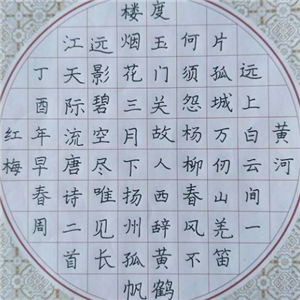 黄河
远上白云间一
片孤城万仞山羌笛
何须怨杨柳春风不
度玉门关故人西辞黄鹤
楼烟花三月下扬州孤帆
远影碧空尽唯见长
江天际流唐诗二首
丁酉年早春周
红梅